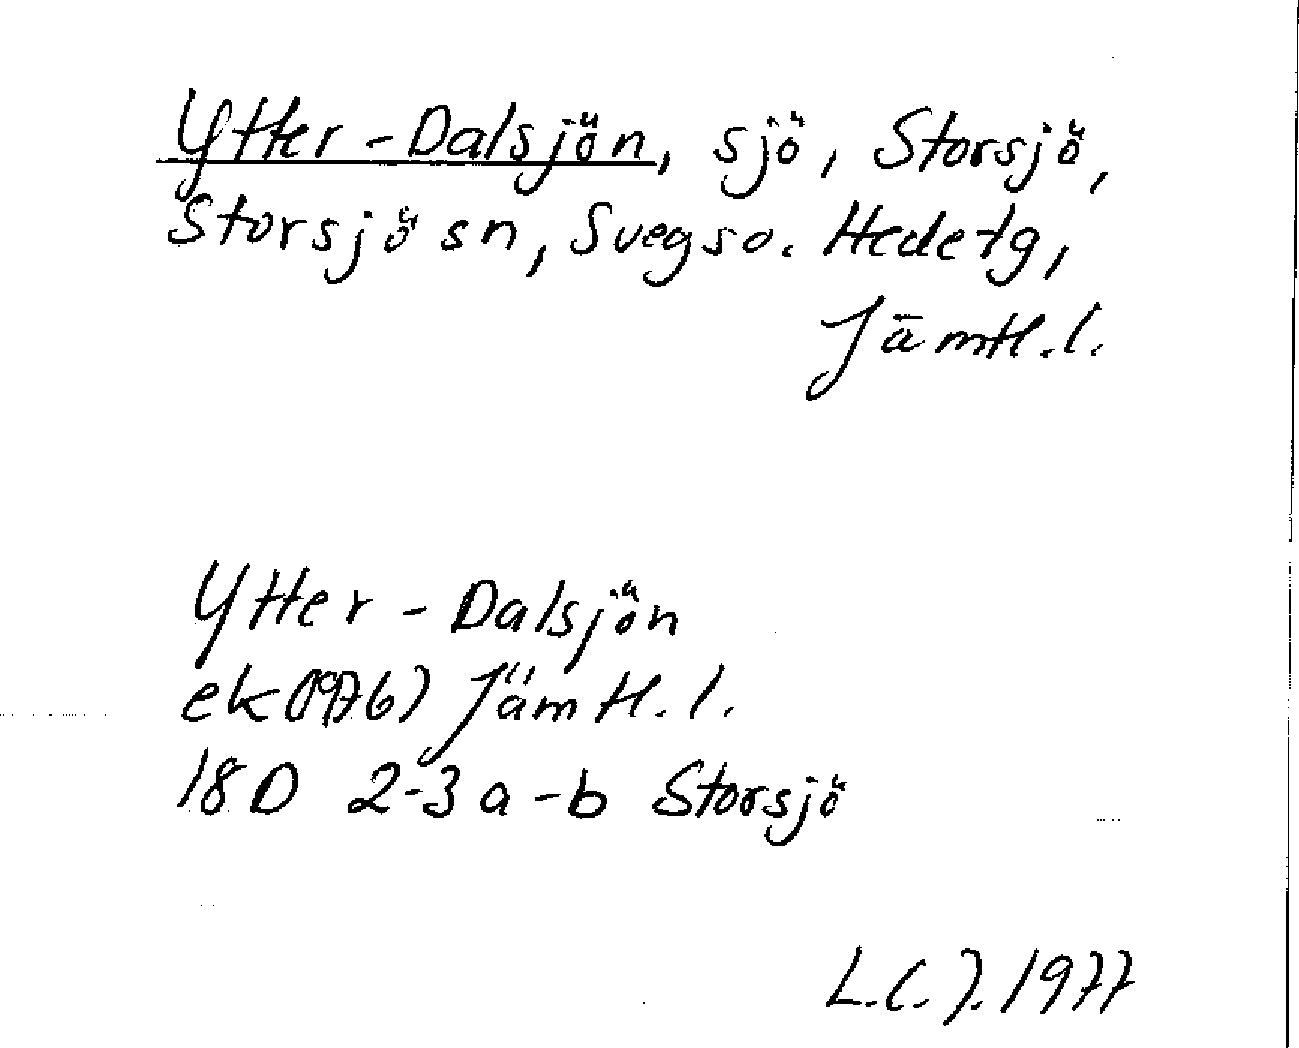 Ytter-Dalsjön, sjö, Storsjö,
Storsjö sn, Svegs o. Hede tg,
Jämtl.l.
Ytter-Dalsjön
ek (1976) Jämtl.l.
18D 2-3 a-b Storsjö
L.C.J. 1977